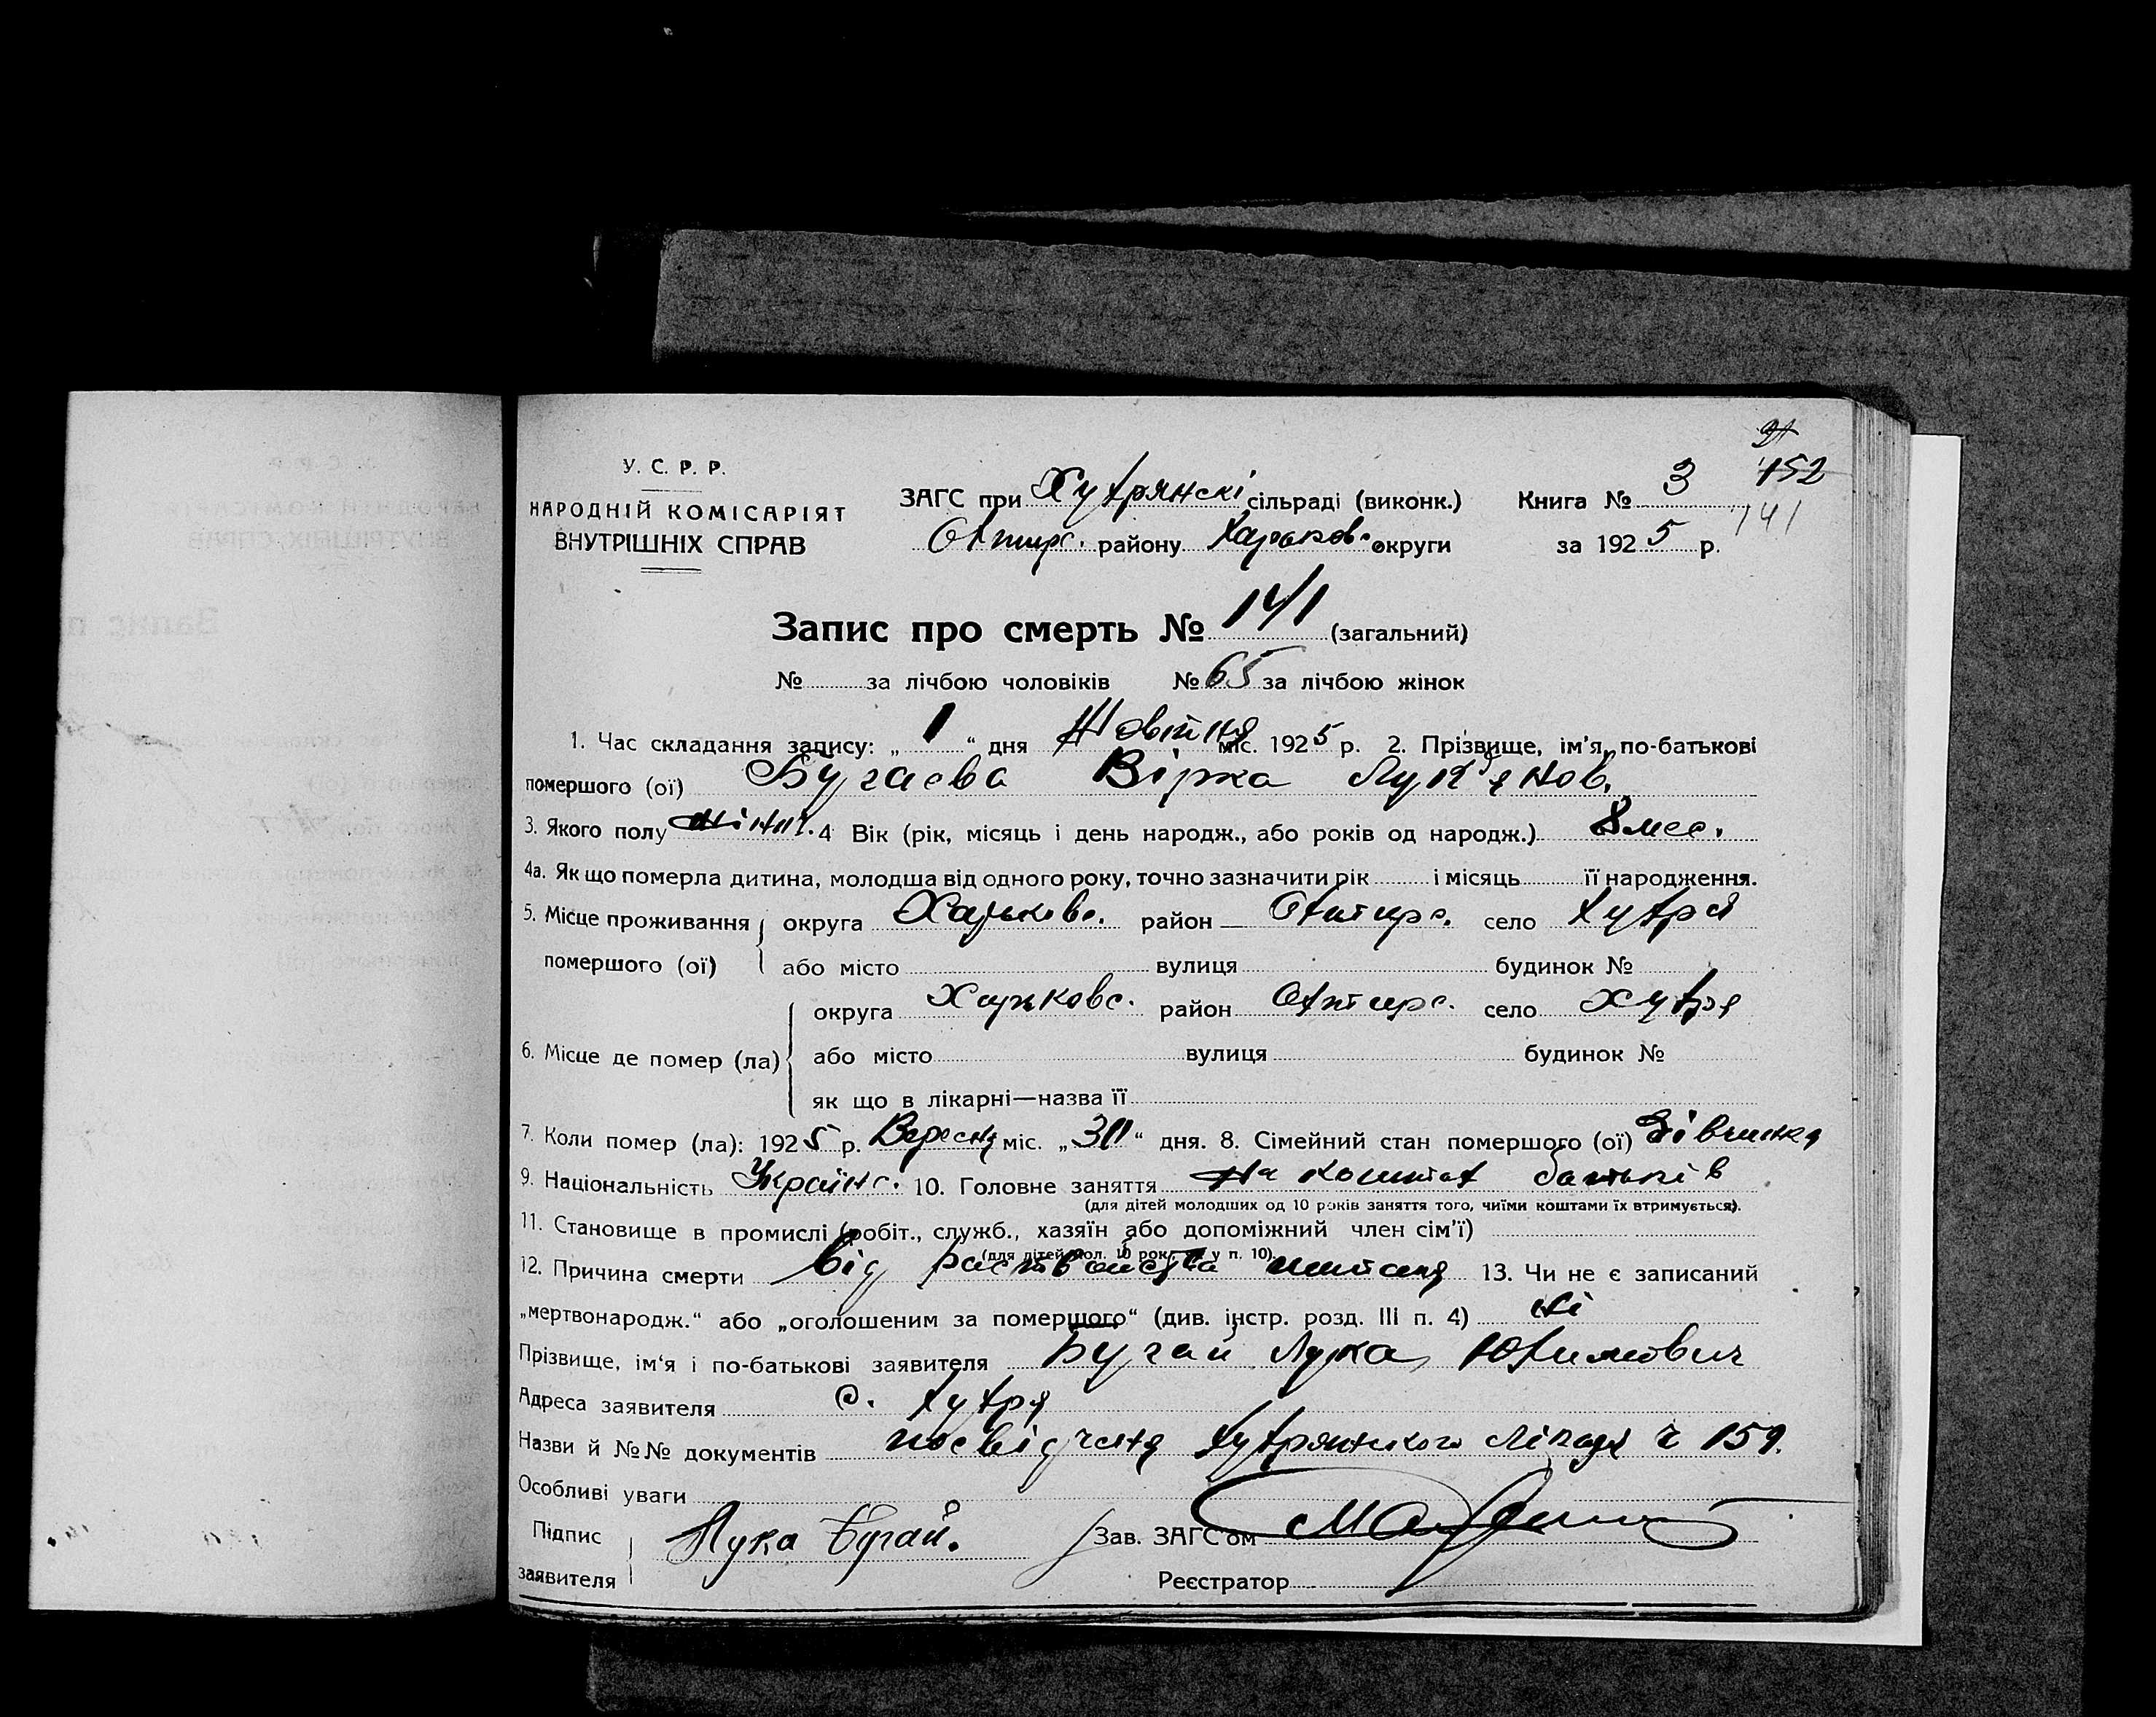 У. С. Р. Р.
НАРОДНІЙ КОМІСАРІЯТ
ВНУТРІШНІХ СПРАВ
ЗАГС при Хухрянскі сільраді (виконк.)
Охтирс. району Харьков. округи
Книга № 3
за 1925 р.
91
152
141
Запис про смерть № 141 (загальний)
№ за лічбою чоловіків № 65 за лічбою жінок
1. Час складання запису: „1“ дня Жовтня міс. 1925 р. 2. Прізвище, ім'я, по-батькові
помершого (ої) Бугаєва Вірка Лук'янов.
3. Якого полу жіноч. 4 Вік (рік, місяць і день народж., або років од народж.) 8 мес.
4а. Як що померла дитина, молодша від одного року, точно зазначити рік і місяць її народження.
5. Місце проживання помершого (ої) округа Харьковс. район Охтирс. село Хухря
або місто вулиця будинок №
6. Місце де помер (ла) округа Харьковс. район Охтирс. село Хухря
або місто вулиця будинок №
як що в лікарні—назва її
7. Коли помер (ла): 1925 р. Вересня міс. „30“ дня. 8. Сімейний стан помершого (ої) Дівчинка
9. Національність Українс. 10. Головне заняття На коштах батьків
(для дітей молодших од 10 років заняття того, чиїми коштами їх втримується).
11. Становище в промислі (робіт., служб., хазяїн або допоміжний член сім'ї)
(для дітей мол. 10 рок. у п. 10).
12. Причина смерти Від 13. Чи не є записаний
„мертвонародж.“ або „оголошеним за помершого“ (див. інстр. розд. III п. 4) Ні
Прізвище, ім'я і по-батькові заявителя Бугай Лука Юхимович
Адреса заявителя с. Хухря
Назви й №№ документів посвідченя Хухрянського ч 159.
Особливі уваги
Підпис заявителя Лука Бугай.
Зав. ЗАГС'ом
Реєстратор